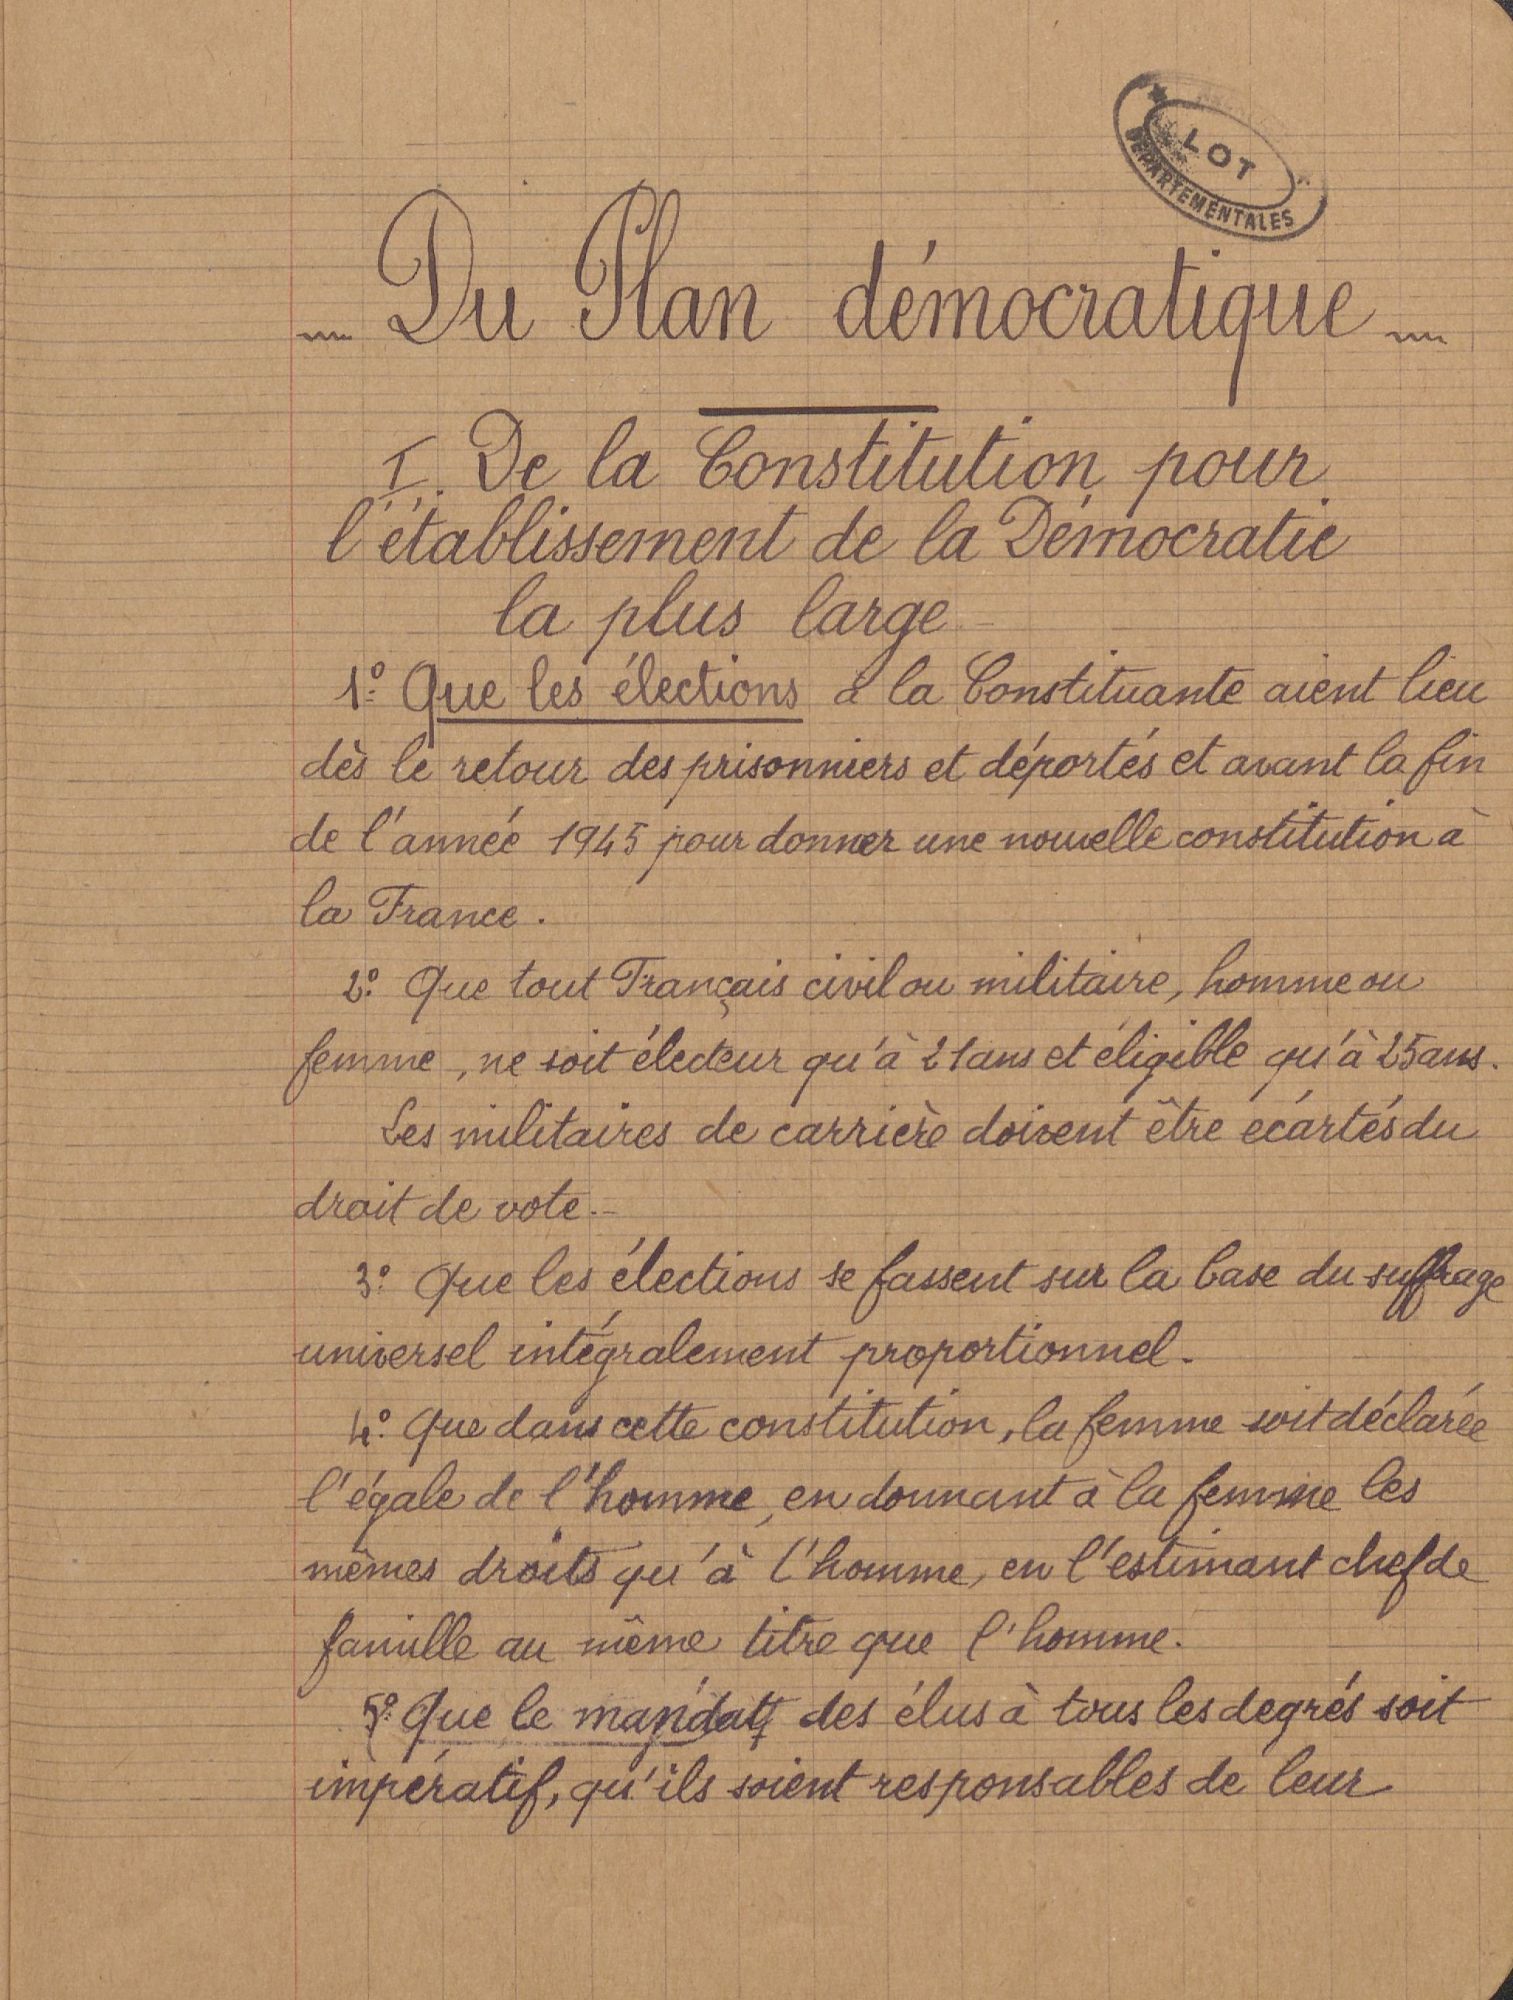 LOT
DÉPARTEMENTALES
Du Plan démocratique
I. De la Constitution pour
l'établissement de la Démocratie
la plus large
1º. Que les élections à la Constituante aient lieu
dès le retour des prisonniers et déportés et avant la fin
de l'année 1945 pour donner une nouvelle constitution à
la France.
2º. Que tout Français civil ou militaire, homme ou
femme, ne soit électeur qu'à 21 ans et éligible qu'à 25 ans.
Les militaires de carrière doivent être écartés du
droit de vote.-
3º. Que les élections se fassent sur la base du suffrage
universel intégralement proportionnel.
4º. Que dans cette constitution, la femme soit déclarée
l'égale de l'homme, en donnant à la femme les
mêmes droits qu'à l'homme, en l'estimant chef de
famille au même titre que l'homme.
5º. Que le mandat des élus à tous les degrés soit
impératif, qu'ils soient responsables de leur